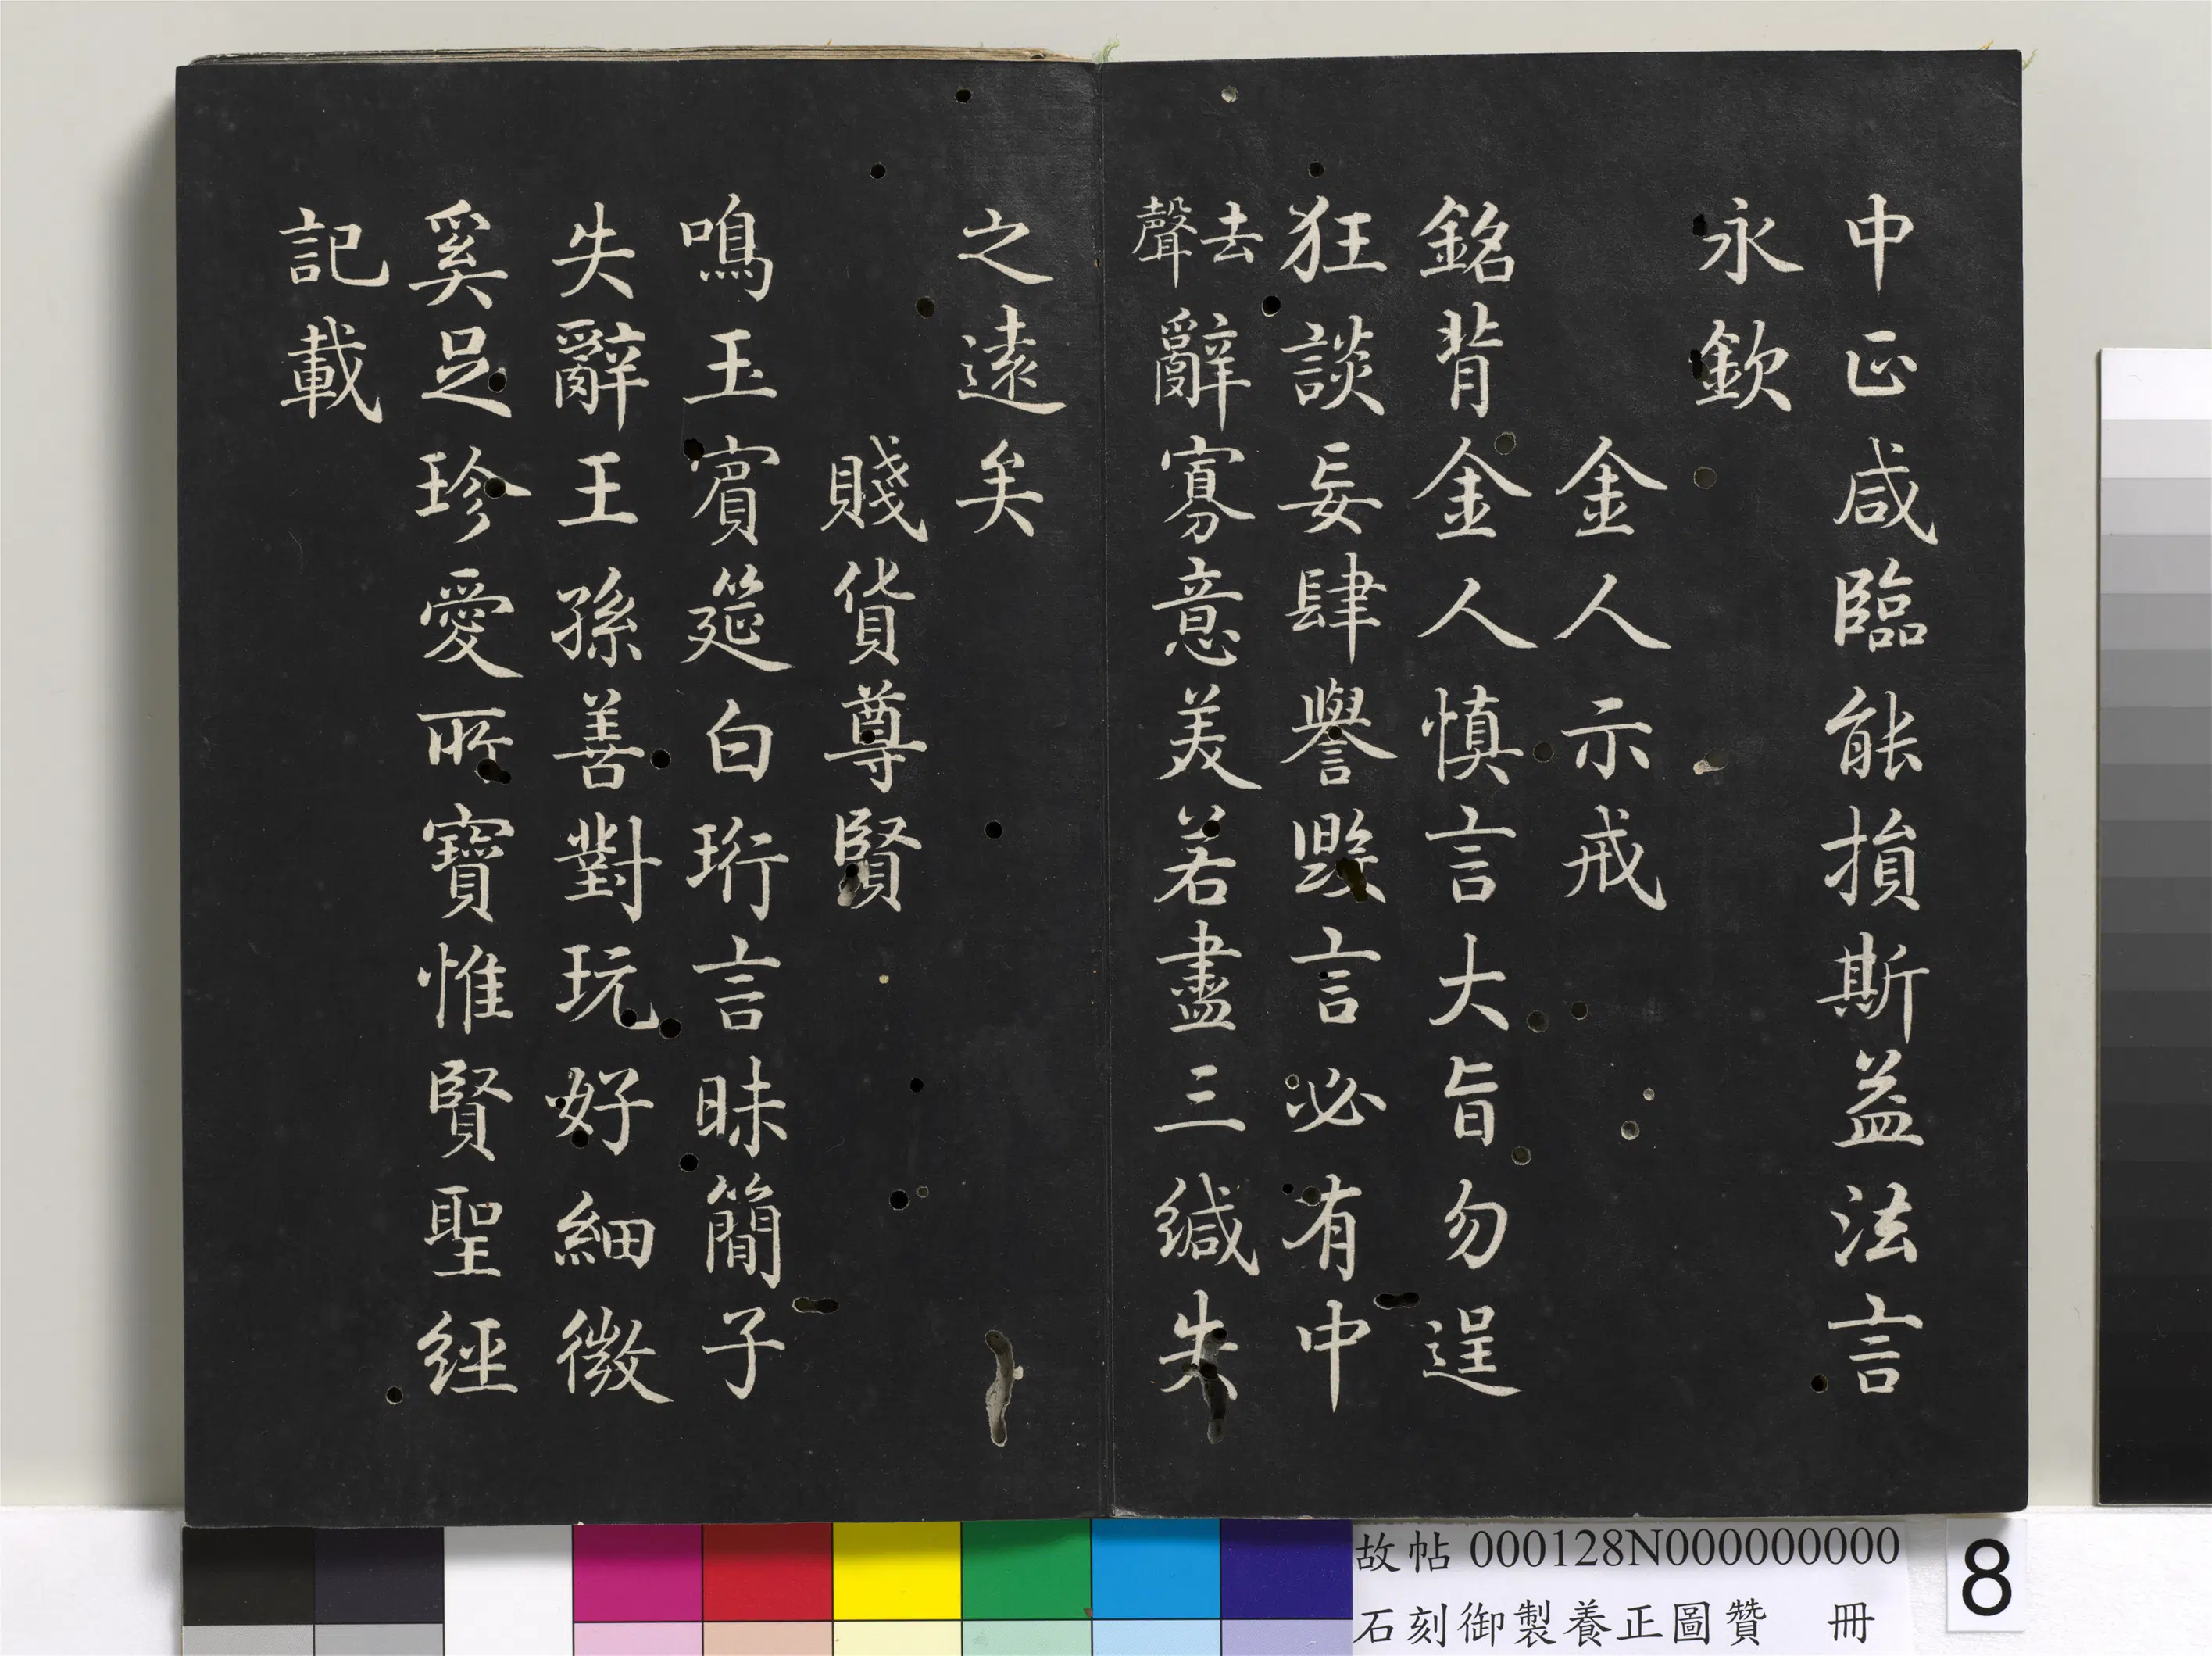 中正咸臨能損斯益法言
永欽
金人示戒
銘背金人慎言大旨勿逞
狂談妄肆譽毀言必有中
去聲辭寡意美若盡三緘失
之遠矣
賤貨尊賢
鳴玉賔筵白珩言昧簡子
失辭王孫善對玩好細微
奚足珍愛所寶惟賢聖經
記載
故帖 000128N000000000
石刻御製養正圖贊 冊
8